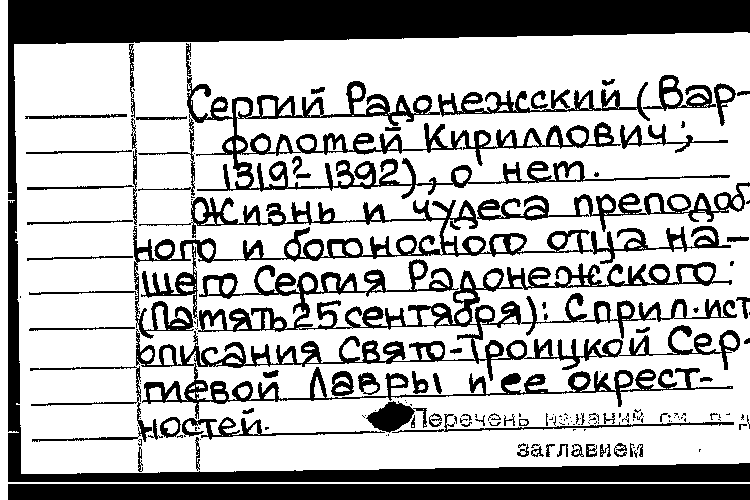 Сергий Радонежский (Вар-
фоломей Кириллович;
1319?-1392), о нет.
Жизнь и чудеса преподоб-
ного и богоносного отца на-
шего Сергия Радонежского:
(Память 25 сентября): С прил. ист.
описания Свято-Троицкой Сер-
гиевой Лавры и ее окрест-
ностей.
Перечень изданий см. под
заглавием